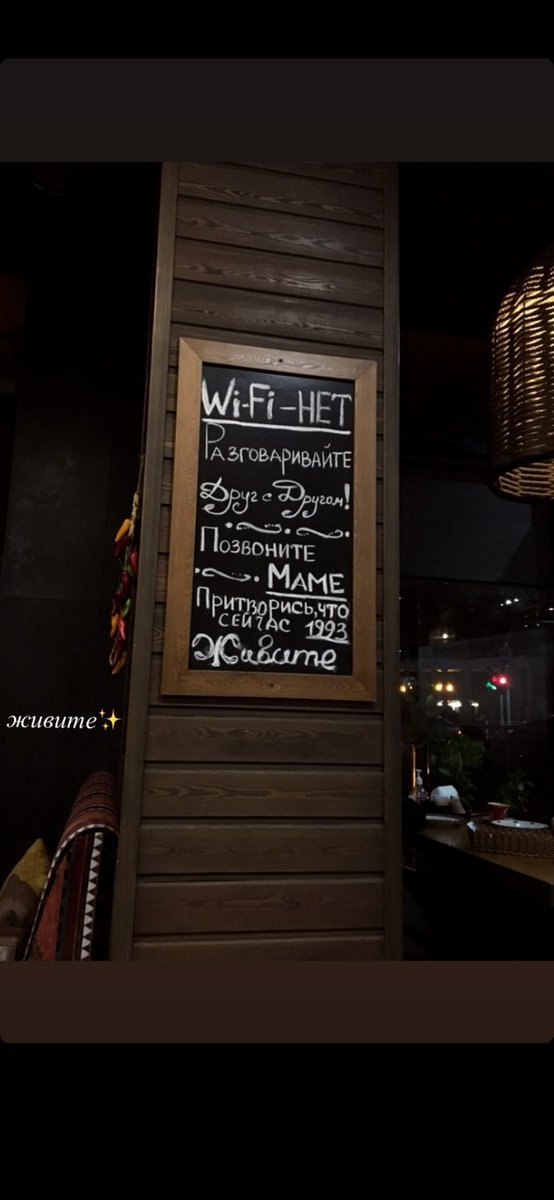 Wi-Fi – НЕТ
Разговаривайте
Друг с Другом!
Позвоните
Маме
Притворись, что
сейчас 1993
Живите
живите✨